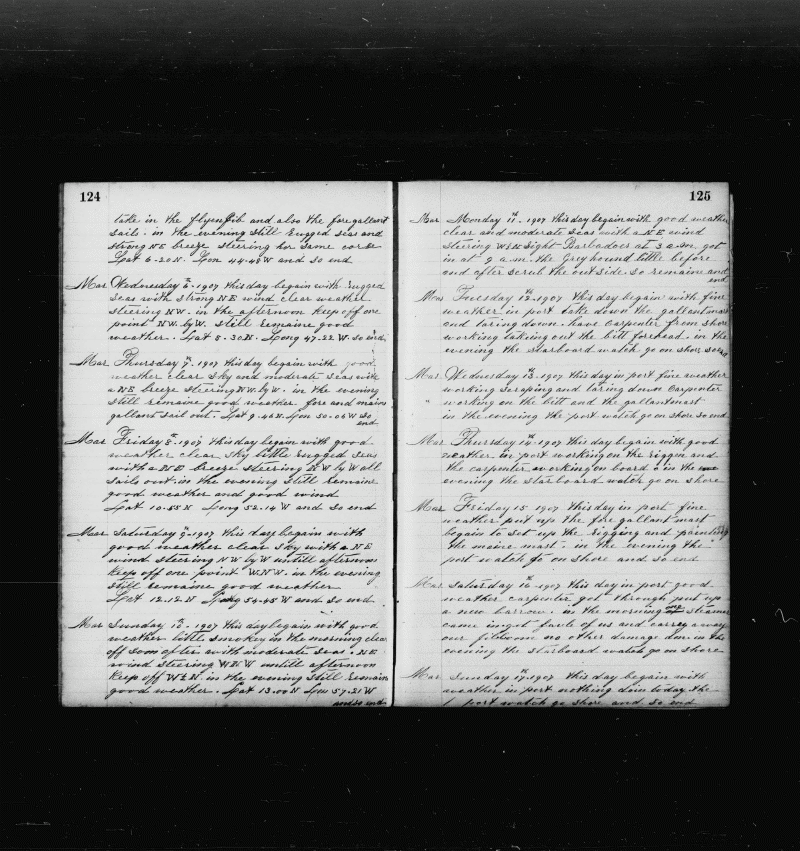 124
take in the flyen Jib and also the fore gallant
sails. in the evening still Rugged seas and
strong NE breeze steering her same corse
Lat 6-20 N. Lon 44-48 W and so end
Mar Wednesday 6. 1907 this day begain with Rugged
seas with strong NE wind clear weather
steering NW. in the afternoon keep off one
point NW. by W. still Remaine good
weather. Lat 5.30 N. Long 47-22 W. so end
Mar Thursday 7. 1907 this day begain with good
weather clear sky and moderate seas with
a NE breeze steering NW. by W. in the evening
still remaine good weather fore and maine
gallant sail out. Lat 9-46 N. Lon 50-04 W so
end
Mar Friday 8. 1907 this day begain with good
weather clear sky little Rugged seas
with a NE breeze steering NW by W all
sails out. in the evening still Remain
good weather and good wind
Lat 10.55 N Long 52.14 W and so end
Mar Saturday 9. 1907 this day begain with
good weather clear sky with a NE
wind steering NW by W untill afternoon
keep off one point WNW. in the evening
still remaine good weather
Lat 12.12 N Long 54-45 W and so end
Mar Sunday 10. 1907 this day begain with good
weather little smokey in the morning clear
off soon after with moderate seas. NE
wind steering WNW untill afternoon
keep off W½N. in the evening still Remain
good weather. Lat 13.00 N Lon 57.21 W
and so end
125
Mar Monday 11th. 1907 this day begain with good weather
clear and moderate seas with a NE wind
steering W½N sight Barbadoes at 3 a.m. got
in at 9 a.m. the Greyhound little before
and after scrub the out side. so remaine and
end
Mar Tuesday 12th. 1907 this day begain with fine
weather in port take down the gallant mast
and taring down. have carpenter from shore
working taking out the bitt forhead. in the
evening the starboard watch go on shore so end
Mar Wednesday 13. 1907 this day in port fine weather
working scraping and taring down carpenter
working on the bitt and the gallant mast
in the evening the port watch go on shore so end
Mar Thursday 14. 1907 this day begain with good
weather in port working on the riggin and
the carpenter working on board. in the
evening the starboard watch go on shore
Mar Friday 15 1907 this day in port fine
weather put up the fore gallant mast
begain to set up the rigging and painting
the maine mast. in the evening the
port watch go on shore and so end
Mar Saturday 16th. 1907 this day in port good
weather carpenter got through put up
a new barrow. in the morning one steamer
came in got foule of us and carrey away
our jibboom no other damage don. in the
evening the starboard watch go on shore
Mar Sunday 17th. 1907 this day begain with
weather in port nothing doin today the
port watch go shore and so end